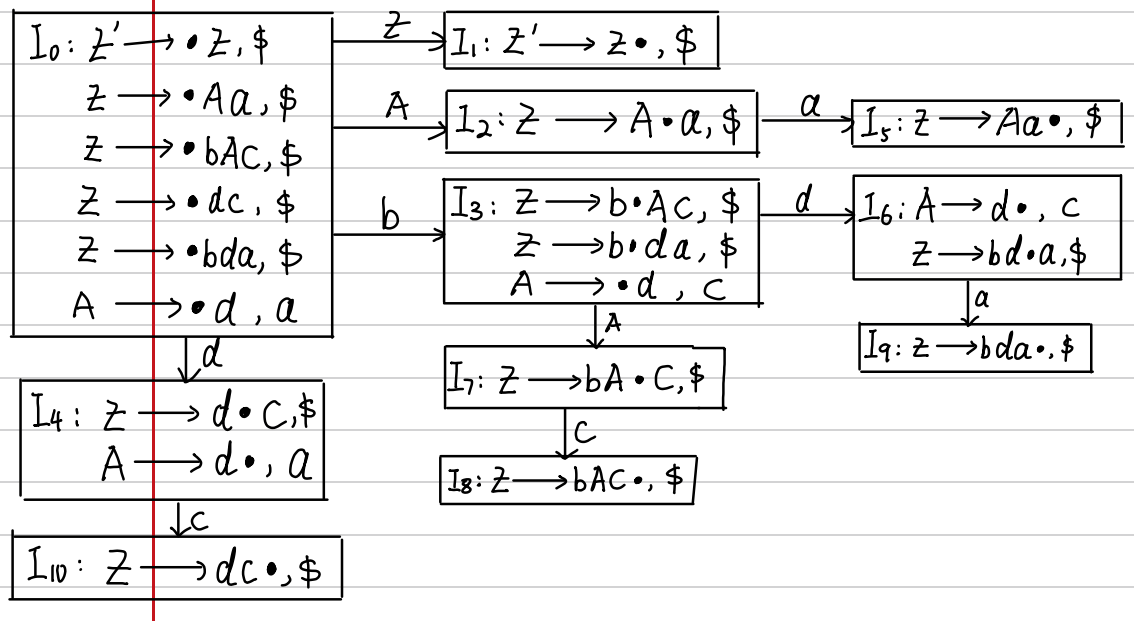 I₀: Z' → •Z, $
Z → •Aa, $
Z → •bAc, $
Z → •dc, $
Z → •bda, $
A → •d, a
Z
I₁: Z' → Z•, $
A
I₂: Z → A•a, $
a
I₅: Z → Aa•, $
b
I₃: Z → b•Ac, $
Z → b•da, $
A → •d, c
d
I₆: A → d•, c
Z → bd•a, $
a
I₉: Z → bda•, $
A
I₇: Z → bA•C, $
C
I₈: Z → bAC•, $
d
I₄: Z → d•C, $
A → d•, a
c
I₁₀: Z → dc•, $